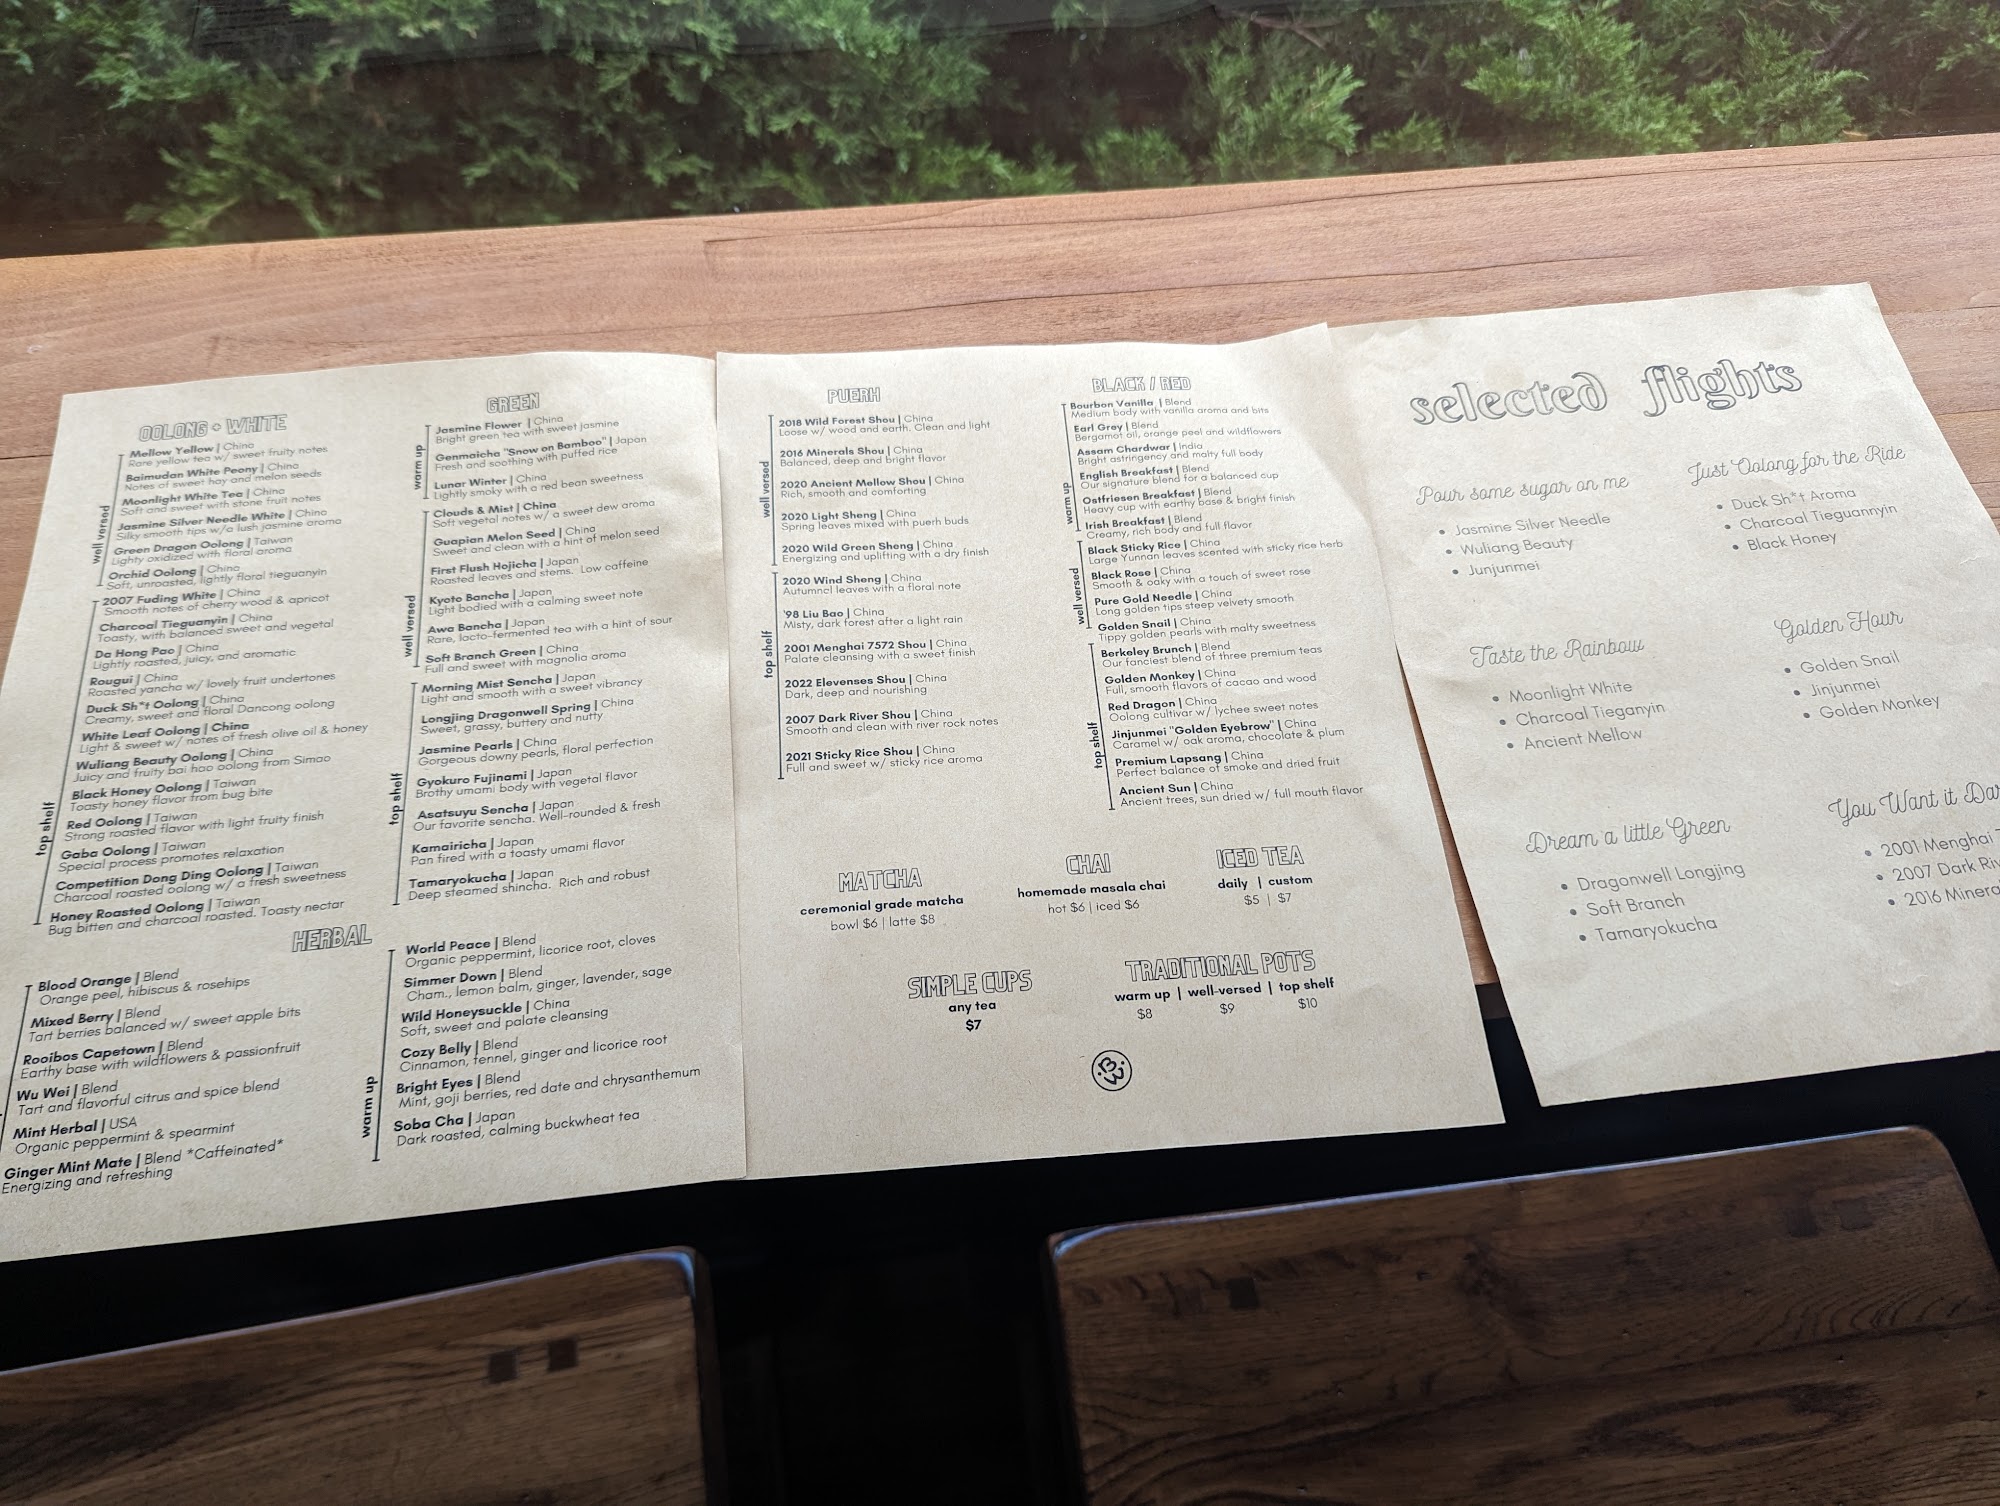 OOLONG + WHITE
well versed
Mellow Yellow | China
Rare yellow tea w/ sweet fruity notes
Baimudan White Peony | China
Notes of sweet hay and melon seeds
Moonlight White Tea | China
Soft and sweet with stone fruit notes
Jasmine Silver Needle White | China
Silky smooth tips w/a lush jasmine aroma
Green Dragon Oolong | Taiwan
Lighty oxidized with floral aroma
Orchid Oolong | China
Soft, unroasted, lightly floral tieguanyin
top shelf
2007 Fuding White | China
Smooth notes of cherry wood & apricot
Charcoal Tieguanyin | China
Toasty, with balanced sweet and vegetal
Da Hong Pao | China
Lightly roasted, juicy, and aromatic
Rougui | China
Roasted yancha w/ lovely fruit undertones
Duck Sh*t Oolong | China
Creamy, sweet and floral Dancong oolong
White Leaf Oolong | China
Light & sweet w/ notes of fresh olive oil & honey
Wuliang Beauty Oolong | China
Juicy and fruity bai hao oolong from Simao
Black Honey Oolong | Taiwan
Toasty honey flavor from bug bite
Red Oolong | Taiwan
Strong roasted flavor with light fruity finish
Gaba Oolong | Taiwan
Special process promotes relaxation
Competition Dong Ding Oolong | Taiwan
Charcoal roasted oolong w/ a fresh sweetness
Honey Roasted Oolong | Taiwan
Bug bitten and charcoal roasted. Toasty nectar
GREEN
warm up
Jasmine Flower | China
Bright green tea with sweet jasmine
Genmaicha "Snow on Bamboo" | Japan
Fresh and soothing with puffed rice
Lunar Winter | China
Lightly smoky with a red bean sweetness
well versed
Clouds & Mist | China
Soft vegetal notes w/ a sweet dew aroma
Guapian Melon Seed | China
Sweet and clean with a hint of melon seed
First Flush Hojicha | Japan
Roasted leaves and stems. Low caffeine
Kyoto Bancha | Japan
Light bodied with a calming sweet note
Awa Bancha | Japan
Rare, lacto-fermented tea with a hint of sour
Soft Branch Green | China
Full and sweet with magnolia aroma
top shelf
Morning Mist Sencha | Japan
Light and smooth with a sweet vibrancy
Longjing Dragonwell Spring | China
Sweet, grassy, buttery and nutty
Jasmine Pearls | China
Gorgeous downy pearls, floral perfection
Gyokuro Fujinami | Japan
Brothy umami body with vegetal flavor
Asatsuyu Sencha | Japan
Our favorite sencha. Well-rounded & fresh
Kamairicha | Japan
Pan fired with a toasty umami flavor
Tamaryokucha | Japan
Deep steamed shincha. Rich and robust
HERBAL
Blood Orange | Blend
Orange peel, hibiscus & rosehips
Mixed Berry | Blend
Tart berries balanced w/ sweet apple bits
Rooibos Capetown | Blend
Earthy base with wildflowers & passionfruit
Wu Wei | Blend
Tart and flavorful citrus and spice blend
Mint Herbal | USA
Organic peppermint & spearmint
Ginger Mint Mate | Blend *Caffeinated*
Energizing and refreshing
warm up
World Peace | Blend
Organic peppermint, licorice root, cloves
Simmer Down | Blend
Cham., lemon balm, ginger, lavender, sage
Wild Honeysuckle | China
Soft, sweet and palate cleansing
Cozy Belly | Blend
Cinnamon, fennel, ginger and licorice root
Bright Eyes | Blend
Mint, goji berries, red date and chrysanthemum
Soba Cha | Japan
Dark roasted, calming buckwheat tea
PUERH
well versed
2018 Wild Forest Shou | China
Loose w/ wood and earth. Clean and light
2016 Minerals Shou | China
Balanced, deep and bright flavor
2020 Ancient Mellow Shou | China
Rich, smooth and comforting
2020 Light Sheng | China
Spring leaves mixed with puerh buds
2020 Wild Green Sheng | China
Energizing and uplifting with a dry finish
top shelf
2020 Wind Sheng | China
Autumncl leaves with a floral note
'98 Liu Bao | China
Misty, dark forest after a light rain
2001 Menghai 7572 Shou | China
Palate cleansing with a sweet finish
2022 Elevenses Shou | China
Dark, deep and nourishing
2007 Dark River Shou | China
Smooth and clean with river rock notes
2021 Sticky Rice Shou | China
Full and sweet w/ sticky rice aroma
BLACK / RED
warm up
Bourbon Vanilla | Blend
Medium body with vanilla aroma and bits
Earl Grey | Blend
Bergamot oil, orange peel and wildflowers
Assam Chardwar | India
Bright astringency and malty full body
English Breakfast | Blend
Our signature blend for a balanced cup
Ostfriesen Breakfast | Blend
Heavy cup with earthy base & bright finish
Irish Breakfast | Blend
Creamy, rich body and full flavor
well versed
Black Sticky Rice | China
Large Yunnan leaves scented with sticky rice herb
Black Rose | China
Smooth & oaky with a touch of sweet rose
Pure Gold Needle | China
Long golden tips steep velvety smooth
Golden Snail | China
Tippy golden pearls with malty sweetness
top shelf
Berkeley Brunch | Blend
Our fanciest blend of three premium teas
Golden Monkey | China
Full, smooth flavors of cacao and wood
Red Dragon | China
Oolong cultivar w/ lychee sweet notes
Jinjunmei "Golden Eyebrow" | China
Caramel w/ oak aroma, chocolate & plum
Premium Lapsang | China
Perfect balance of smoke and dried fruit
Ancient Sun | China
Ancient trees, sun dried w/ full mouth flavor
MATCHA
ceremonial grade matcha
bowl $6 | latte $8
CHAI
homemade masala chai
hot $6 | iced $6
ICED TEA
daily | custom
$5 | $7
SIMPLE CUPS
any tea
$7
TRADITIONAL POTS
warm up | well-versed | top shelf
$8 $9 $10
selected flights
Pour some sugar on me
• Jasmine Silver Needle
• Wuliang Beauty
• Junjunmei
Just Oolong for the Ride
• Duck Sh*t Aroma
• Charcoal Tieguannyin
• Black Honey
Taste the Rainbow
• Moonlight White
• Charcoal Tieganyin
• Ancient Mellow
Golden Hour
• Golden Snail
• Jinjunmei
• Golden Monkey
Dream a little Green
• Dragonwell Longjing
• Soft Branch
• Tamaryokucha
You Want it Da
• 2001 Menghai
• 2007 Dark Riv
• 2016 Minera